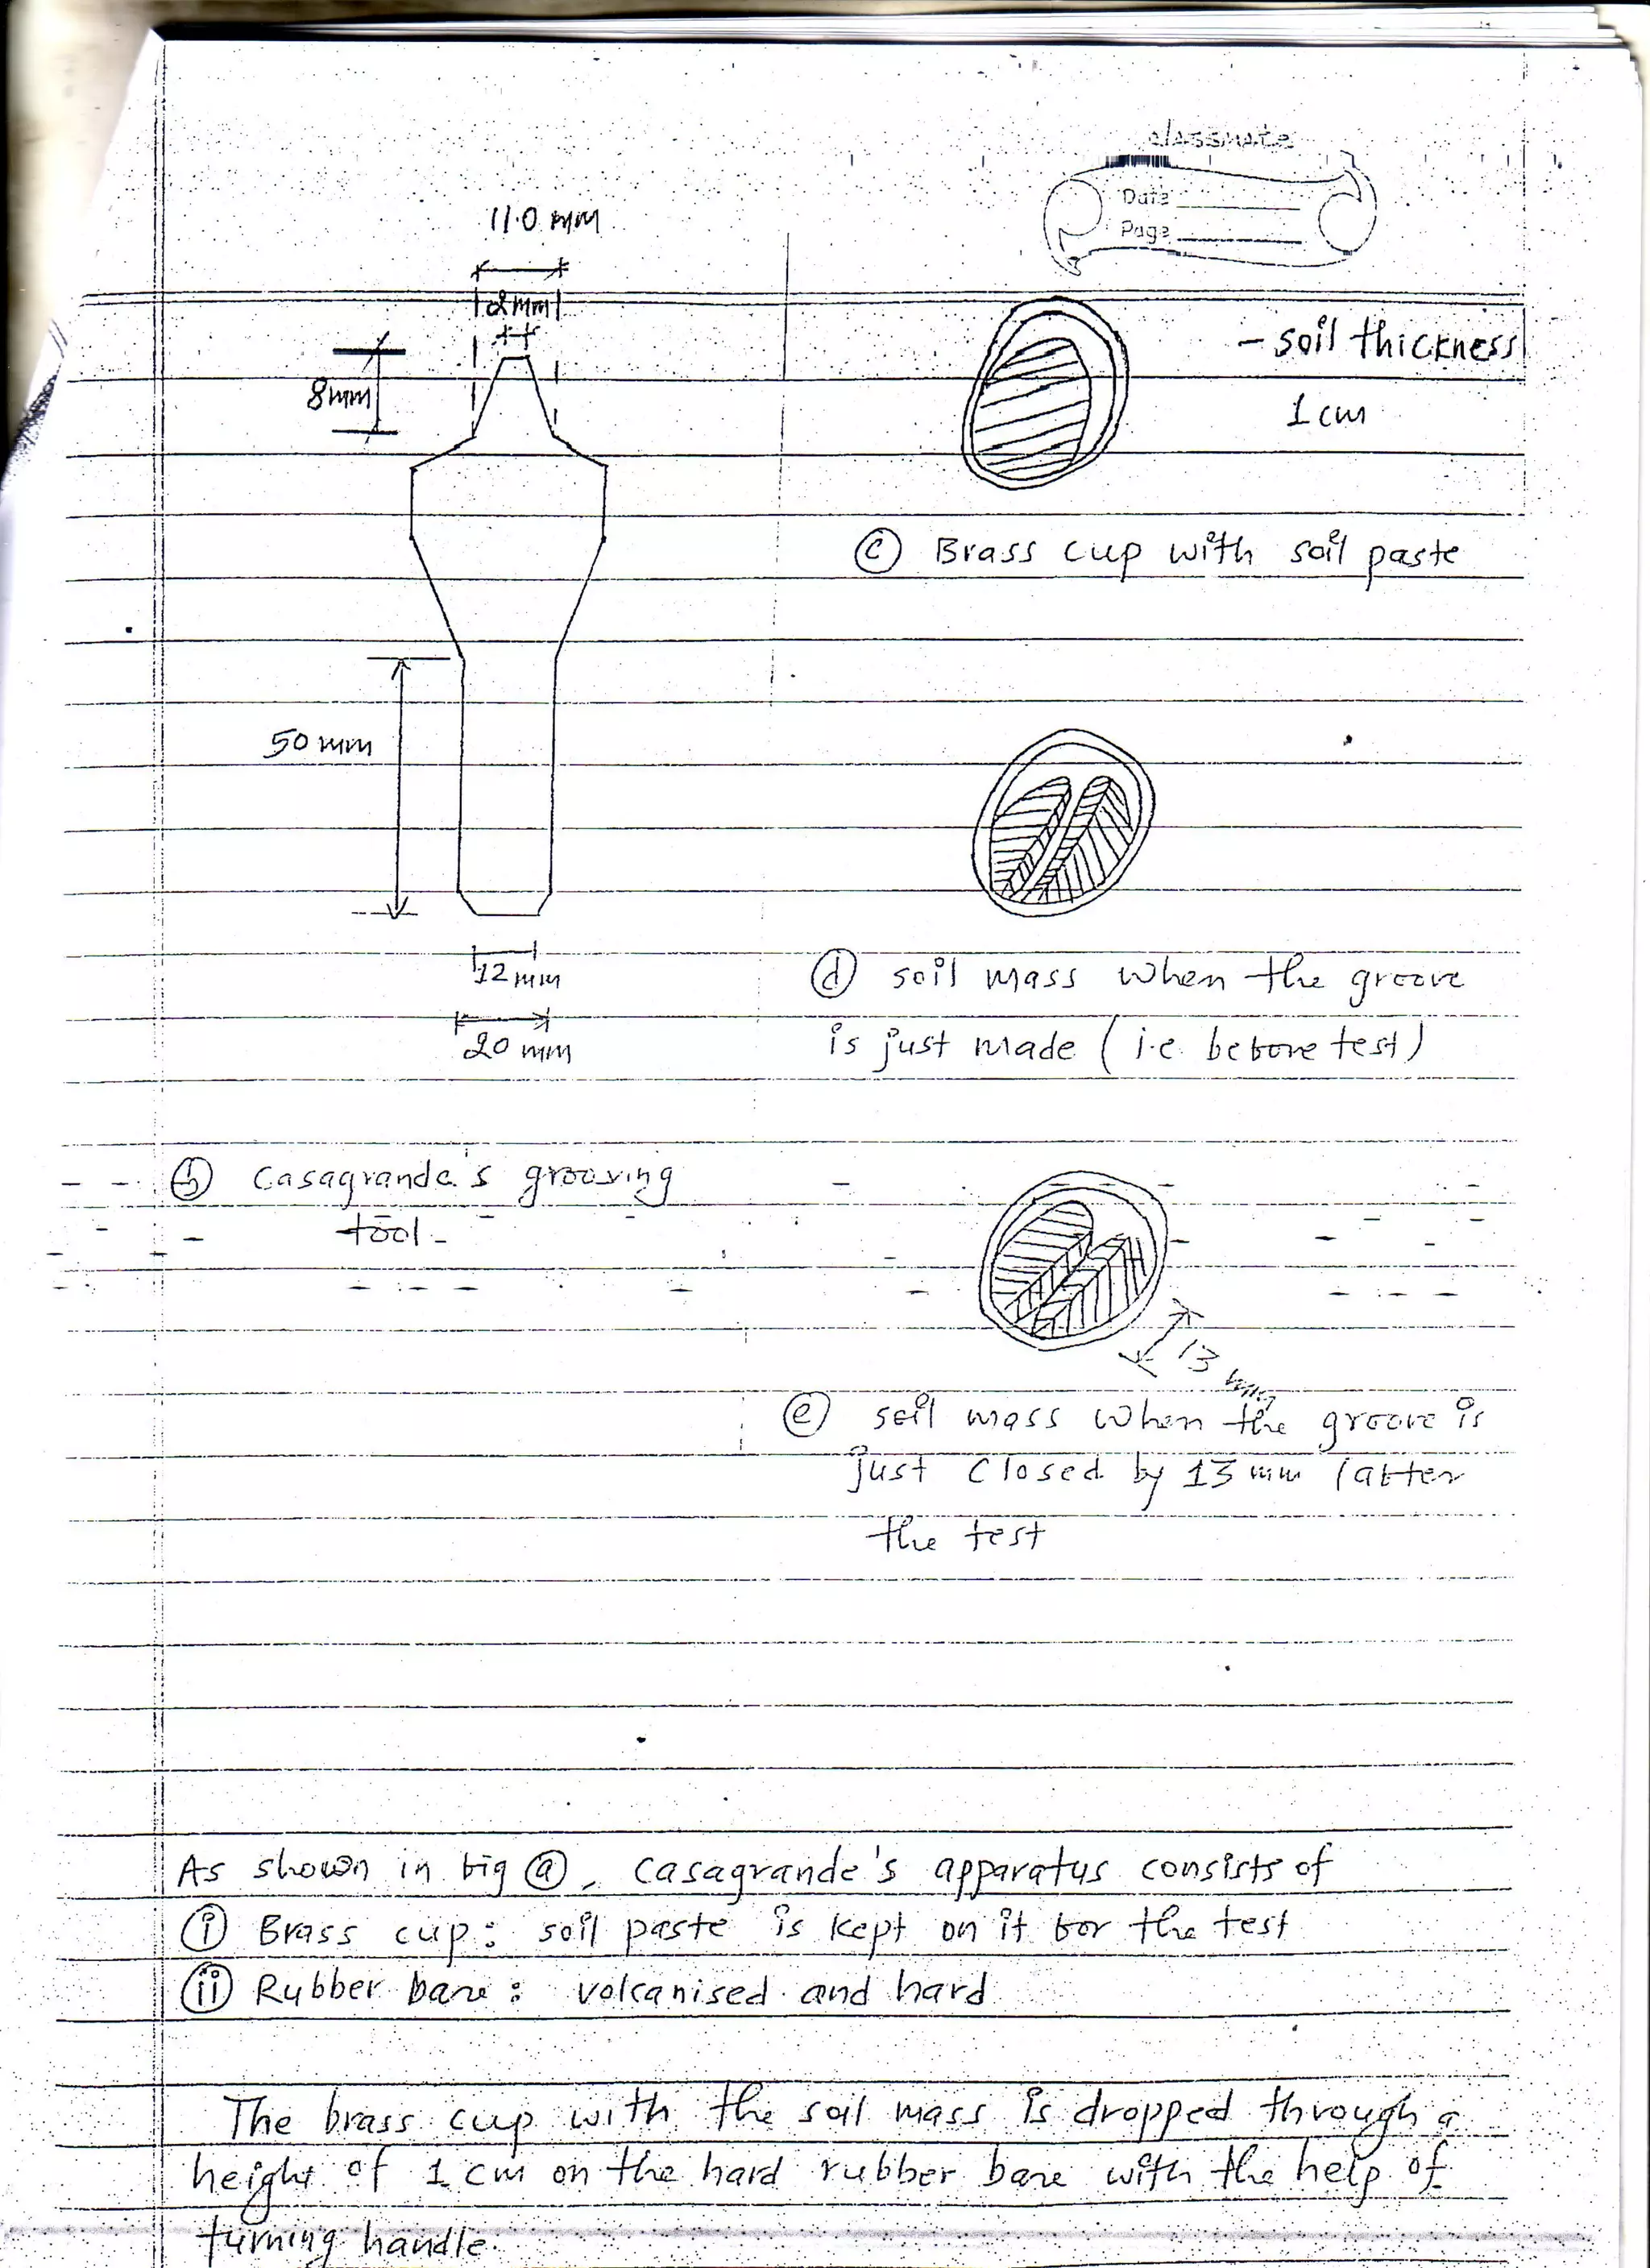 classmate
Date
Page
11.0 mm
2mm
8mm
- soil thickness
1 cm
© Brass cup with soil paste
50 mm
12 mm
20 mm
ⓓ soil mass when the groove
is just made ( i.e. before test)
ⓑ Casagrande's grooving
tool -
13 mm
ⓔ soil mass when the groove is
just closed by 13 mm (after
the test
As shown in fig ⓐ, Casagrande's apparatus consists of
ⓘ Brass cup : soil paste is kept on it for the test
(ii) Rubber base : volcanised and hard
The brass cup with the soil mass is dropped through a
height of 1 cm on the hard rubber base with the help of
turning handle.